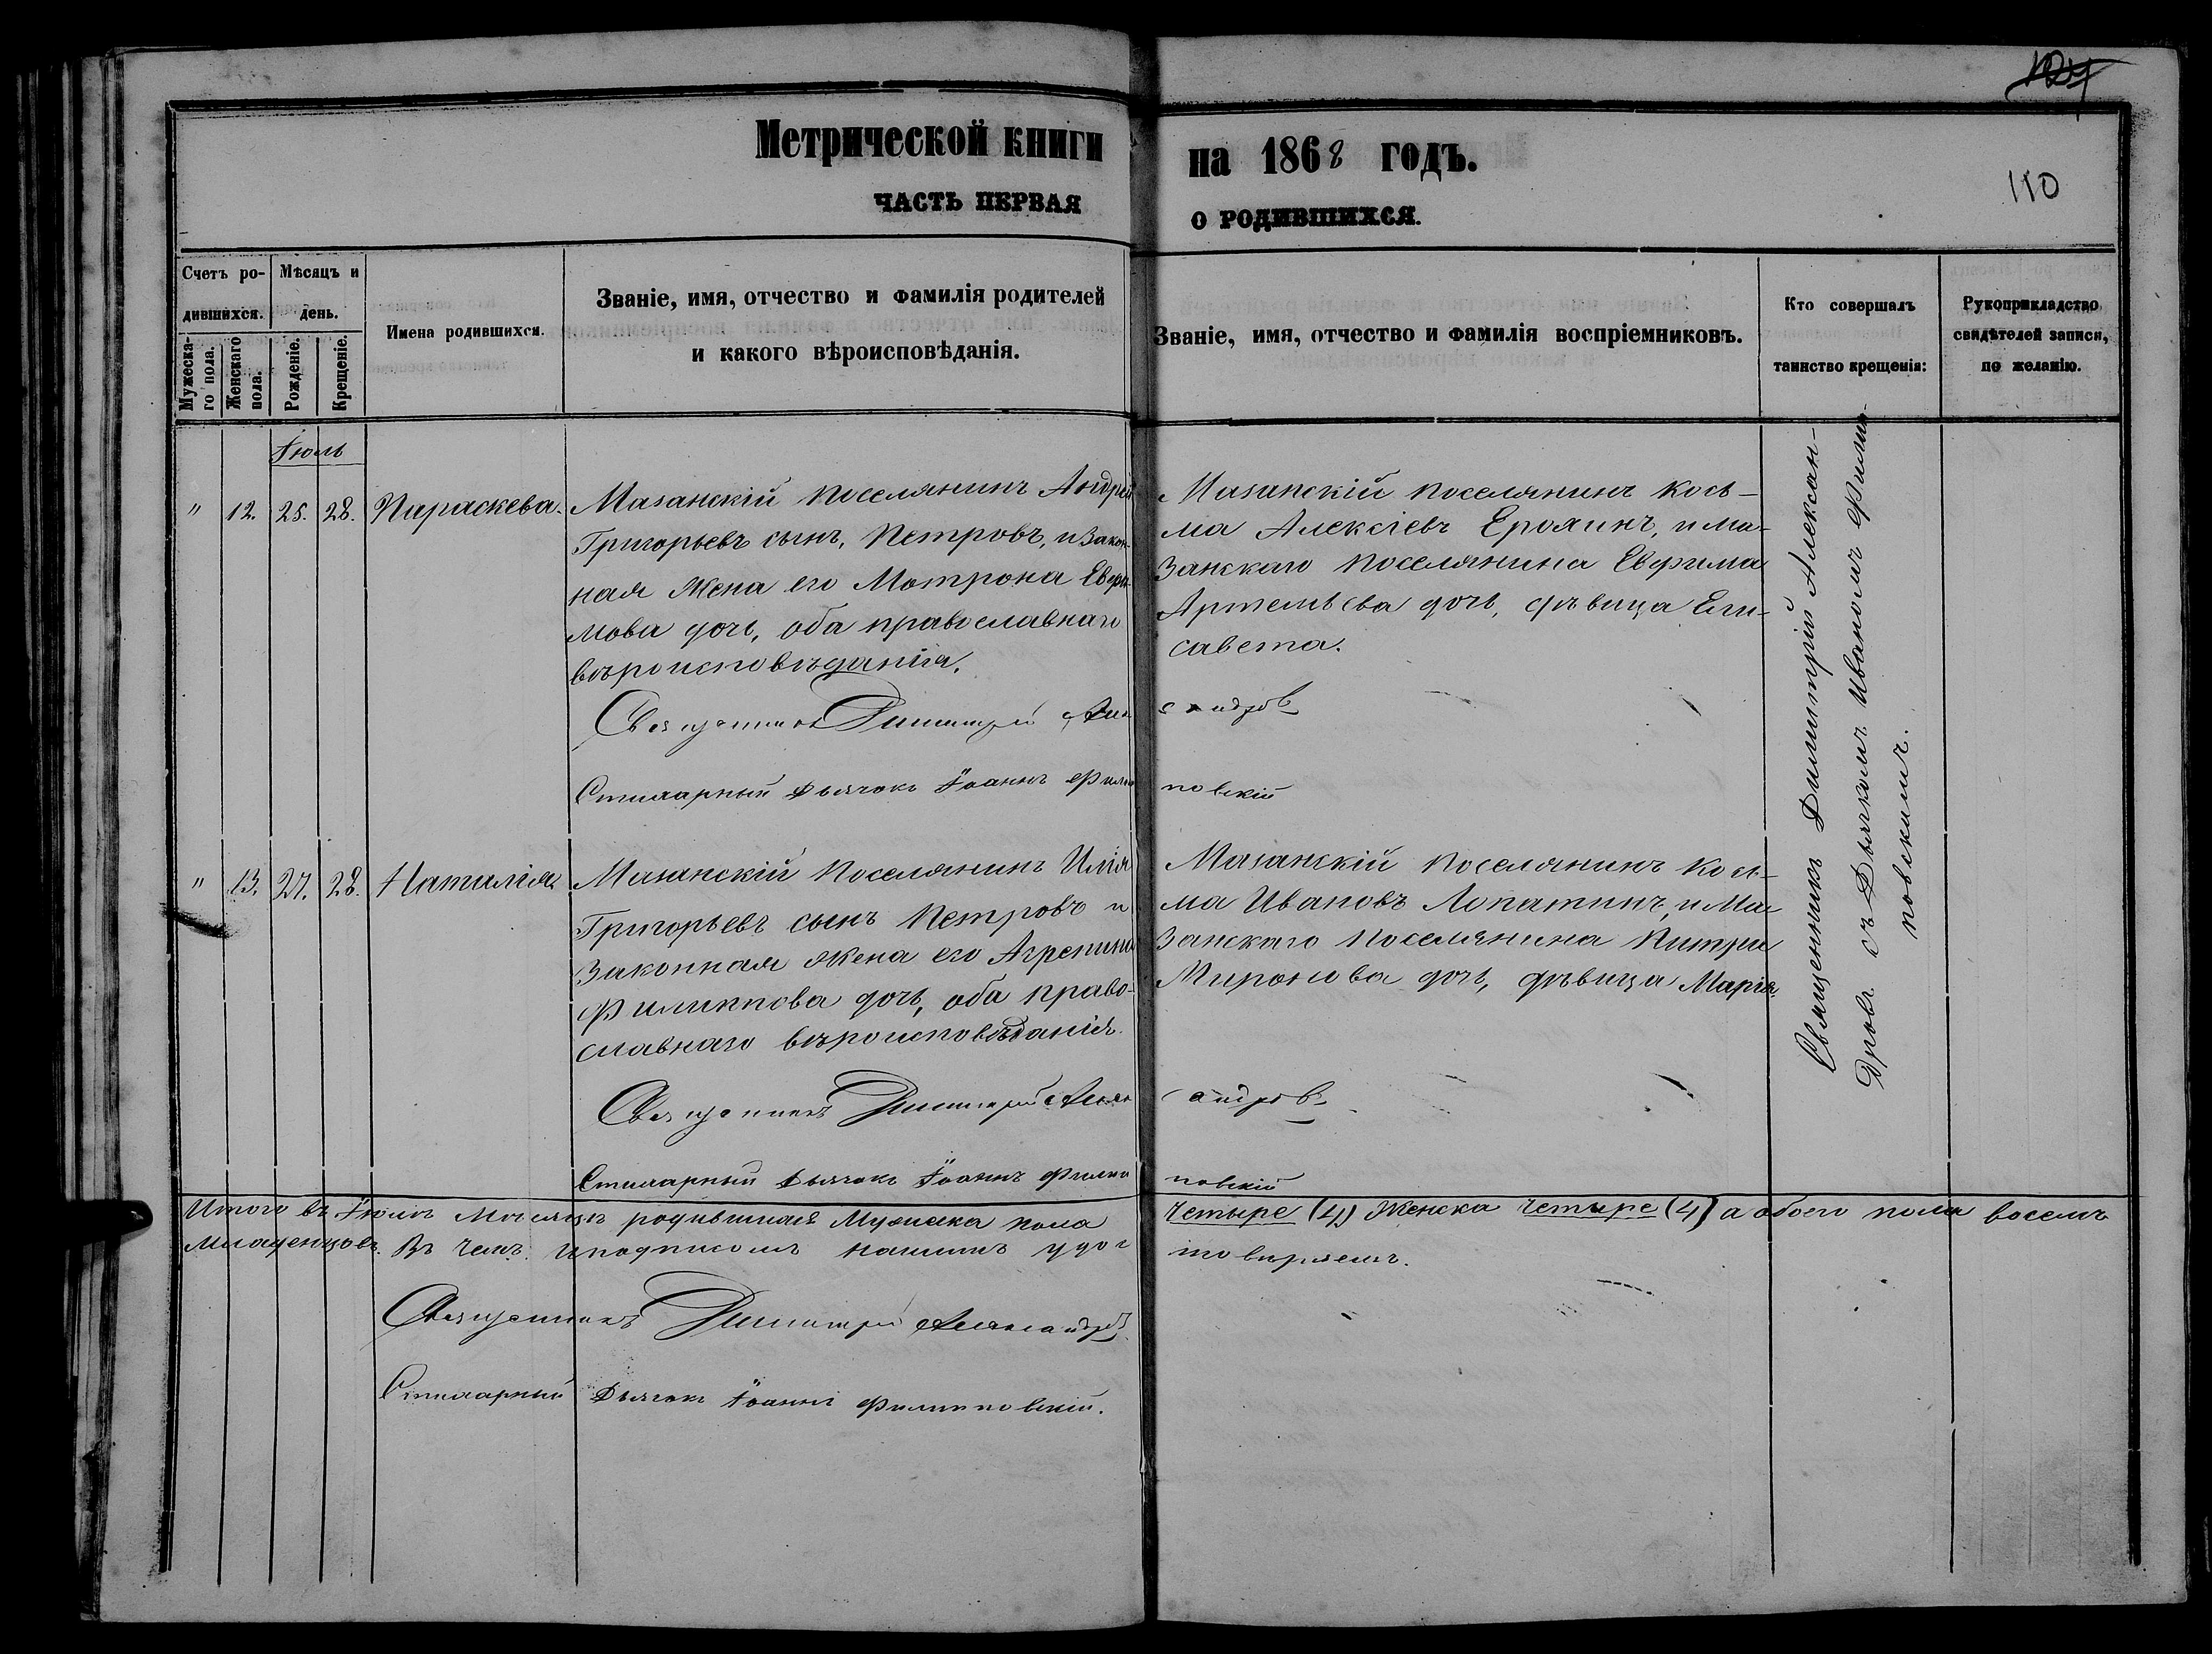 124
110
Метрической книги на 1868 годъ.
ЧАСТЬ ПЕРВАЯ О РОДИВШИХСЯ.
Счетъ ро-
дившихся.
Мужеска-
го пола.
Женскаго
пола.
Мѣсяцъ и
день.
Рожденіе.
Крещеніе.
Имена родившихся.
Званіе, имя, отчество и фамилія родителей
и какого вѣроисповѣданія.
Званіе, имя, отчество и фамилія воспріемниковъ.
Кто совершалъ
таинство крещенія:
Рукоприкладство
свидѣтелей записи,
по желанію.
Іюль
" 12. 25. 28. Параскева.
Мазанскій поселянинъ Андрей
Григорьевъ сынъ, Петровъ, и закон-
ная жена его Матрона Евфи-
мова дочь, оба православнаго
вѣроисповѣданія.
Мазанскій поселянинъ Кось-
ма Алексіевъ Ерохинъ, и Ма-
занскаго поселянина Евфима
Артемьева дочь, дѣвица Ели-
савета.
Священникъ Димитрій Александровъ
Стихарный Дьячокъ Іоаннъ Филиповскій
" 13. 27. 28. Наталія.
Мазанскій поселянинъ Илія
Григорьевъ сынъ Петровъ и
законная жена его Агрепина
Филиппова дочь, оба право-
славнаго вѣроисповѣданія.
Мазанскій поселянинъ Кось-
ма Ивановъ Лопатинъ, и Ма-
занскаго поселянина
Миронова дочь, дѣвица Марія.
Священникъ Димитрій Александровъ
Стихарный Дьячокъ Іоаннъ Филиповскій
Священникъ Димитрій Алексан-
дровъ съ Дьячкомъ Иваномъ Филип-
повскимъ.
Итого въ Іюлѣ Мѣсяцѣ родившихся Мужеска пола Четыре (4) Женска Четыре (4) а обоего пола восемь
Младенцовъ. Въ чемъ и подписомъ нашимъ удостовѣряемъ.
Священникъ Димитрій Александровъ
Стихарный Дьячокъ Іоаннъ Филиповскій.